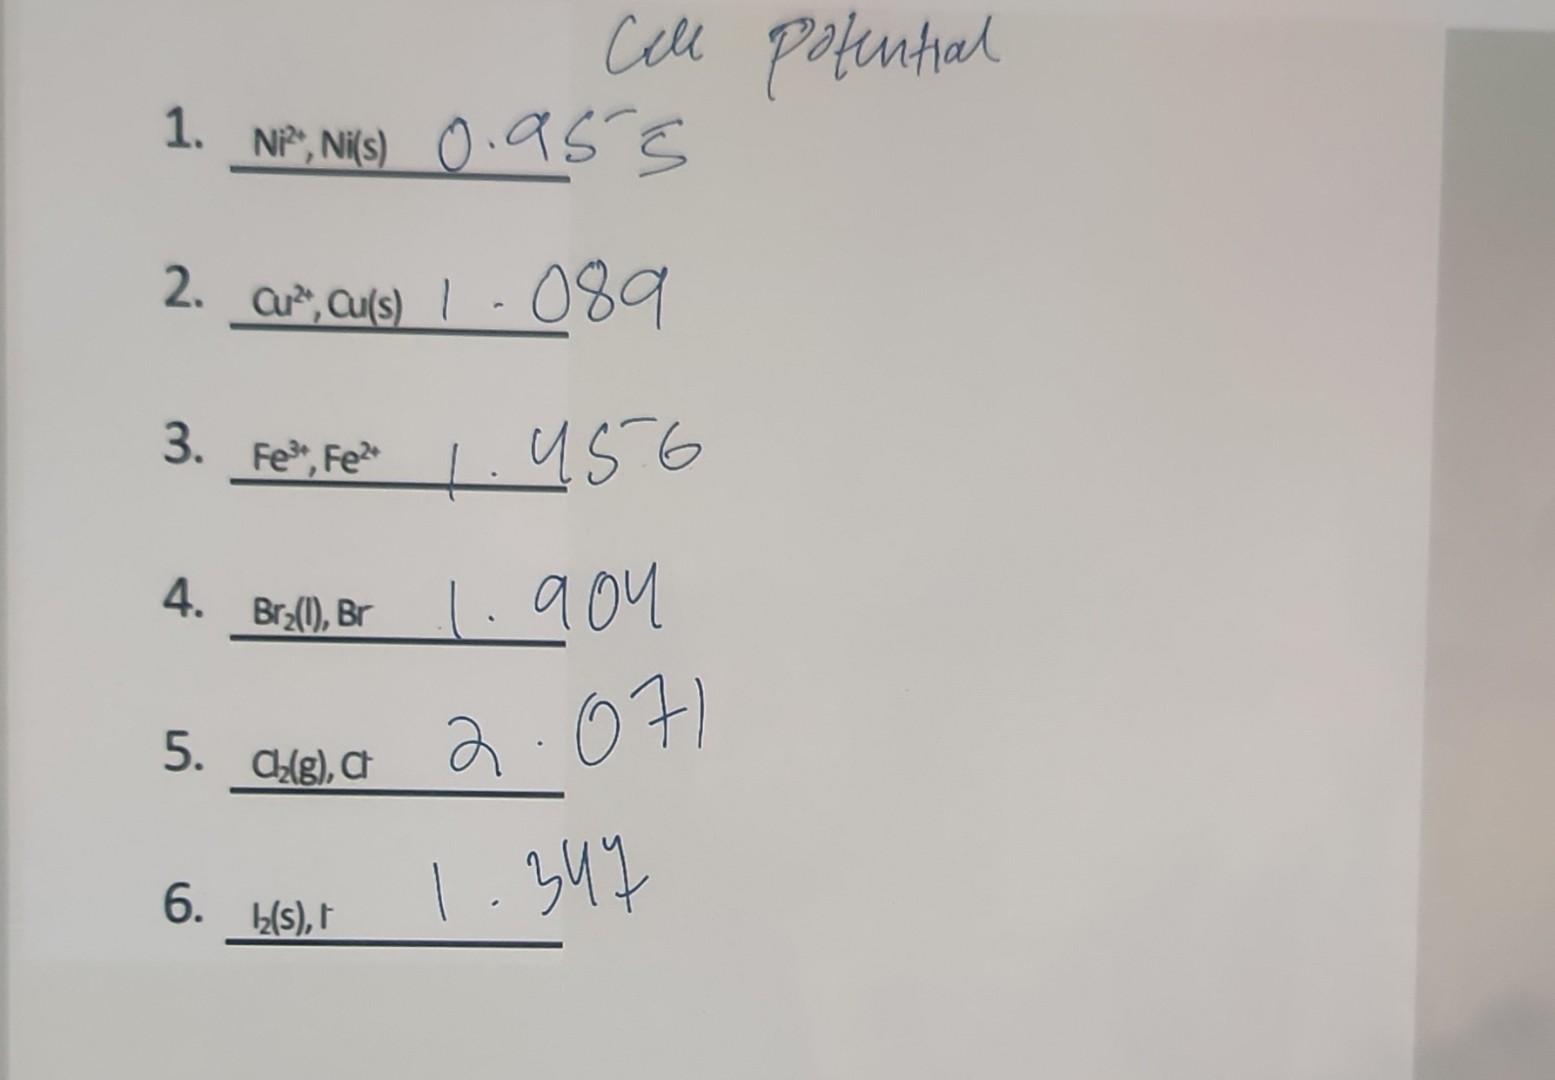 Cell potential
1. Ni²⁺, Ni(s) 0.955
2. Cu²⁺, Cu(s) 1.089
3. Fe³⁺, Fe²⁺ 1.456
4. Br₂(l), Br 1.904
5. Cl₂(g), Cl⁻ 2.071
6. I₂(s), I⁻ 1.347